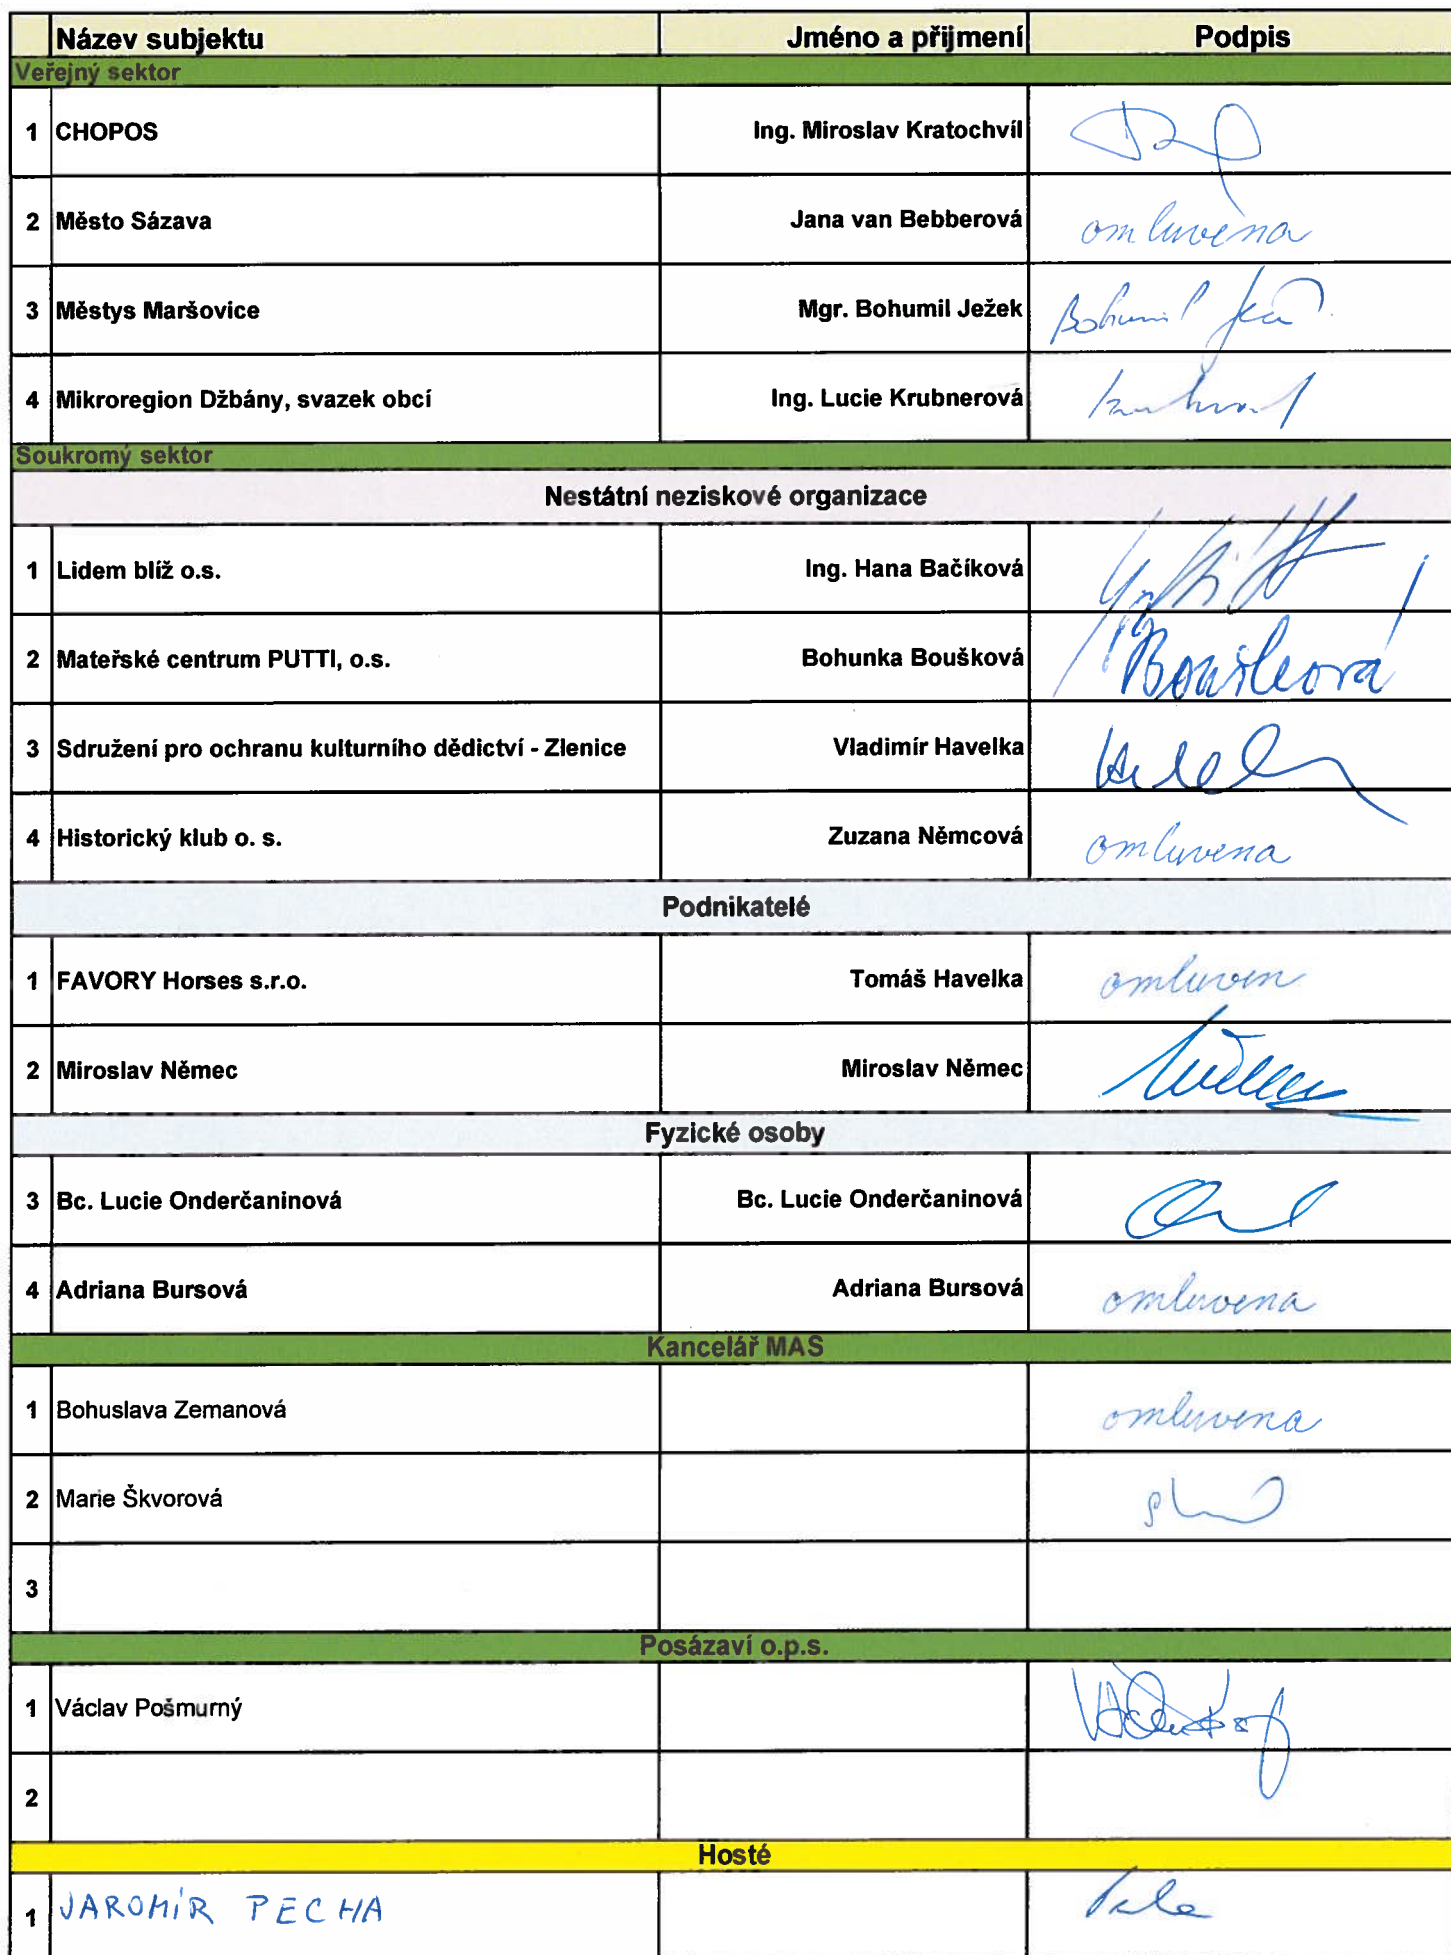 Název subjektu Jméno a přijmení Podpis
Veřejný sektor
1 CHOPOS Ing. Miroslav Kratochvíl
2 Město Sázava Jana van Bebberová omluvena
3 Městys Maršovice Mgr. Bohumil Ježek Bohumil
4 Mikroregion Džbány, svazek obcí Ing. Lucie Krubnerová
Soukromý sektor
Nestátní neziskové organizace
1 Lidem blíž o.s. Ing. Hana Bačíková
2 Mateřské centrum PUTTI, o.s. Bohunka Boušková Boušková
3 Sdružení pro ochranu kulturního dědictví - Zlenice Vladimír Havelka
4 Historický klub o. s. Zuzana Němcová omluvena
Podnikatelé
1 FAVORY Horses s.r.o. Tomáš Havelka omluven
2 Miroslav Němec Miroslav Němec
Fyzické osoby
3 Bc. Lucie Onderčaninová Bc. Lucie Onderčaninová
4 Adriana Bursová Adriana Bursová omluvena
Kancelář MAS
1 Bohuslava Zemanová omluvena
2 Marie Škvorová
3
Posázaví o.p.s.
1 Václav Pošmurný
2
Hosté
1 JAROMÍR PECHA